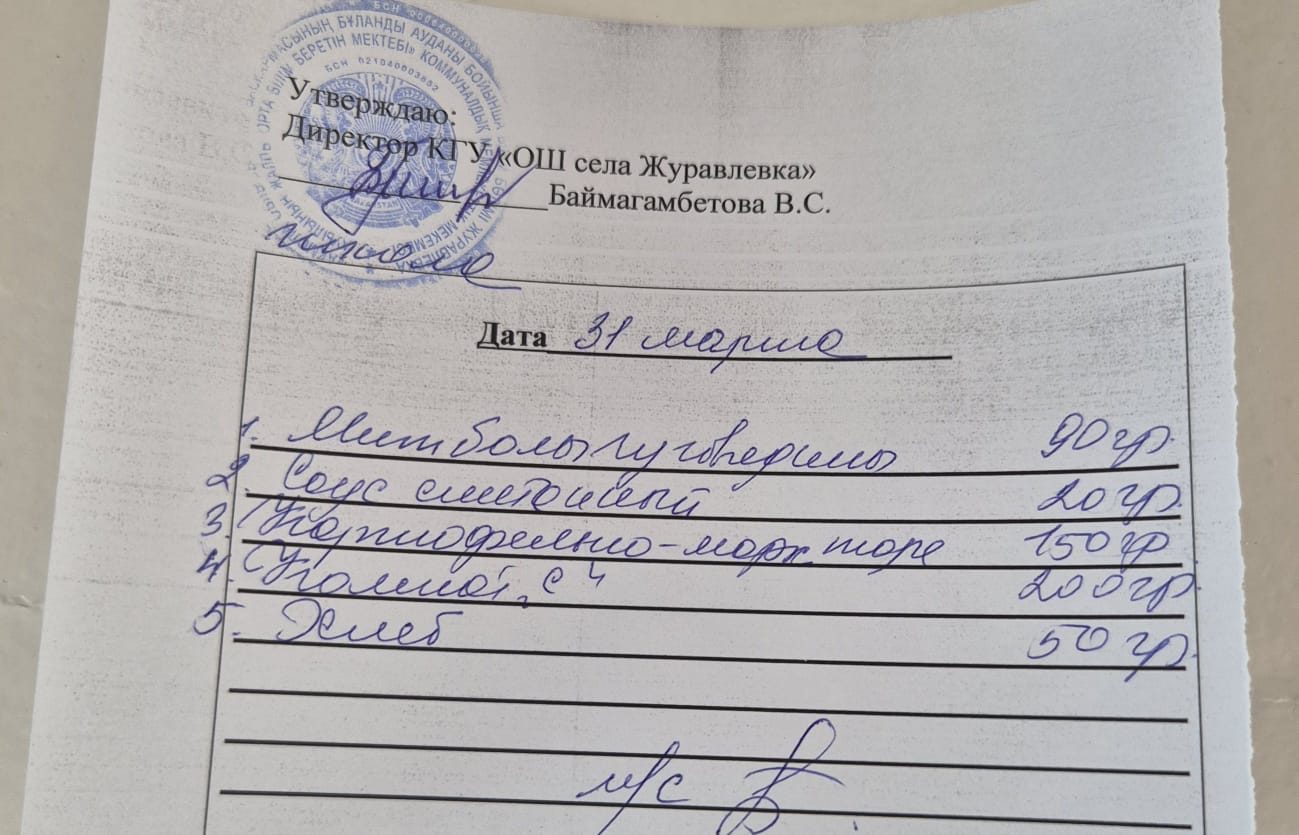 Утверждаю:
Директор КГУ «ОШ села Журавлевка»
Баймагамбетова В.С.
школа
Дата 31 марта
1. Митболы гуговядины 90 гр.
2. Соус сметанный 20 гр.
3. Картофельно-морк пюре 150 гр
4. Компот „С" 200 гр.
5. Хлеб 50 гр.
м/с